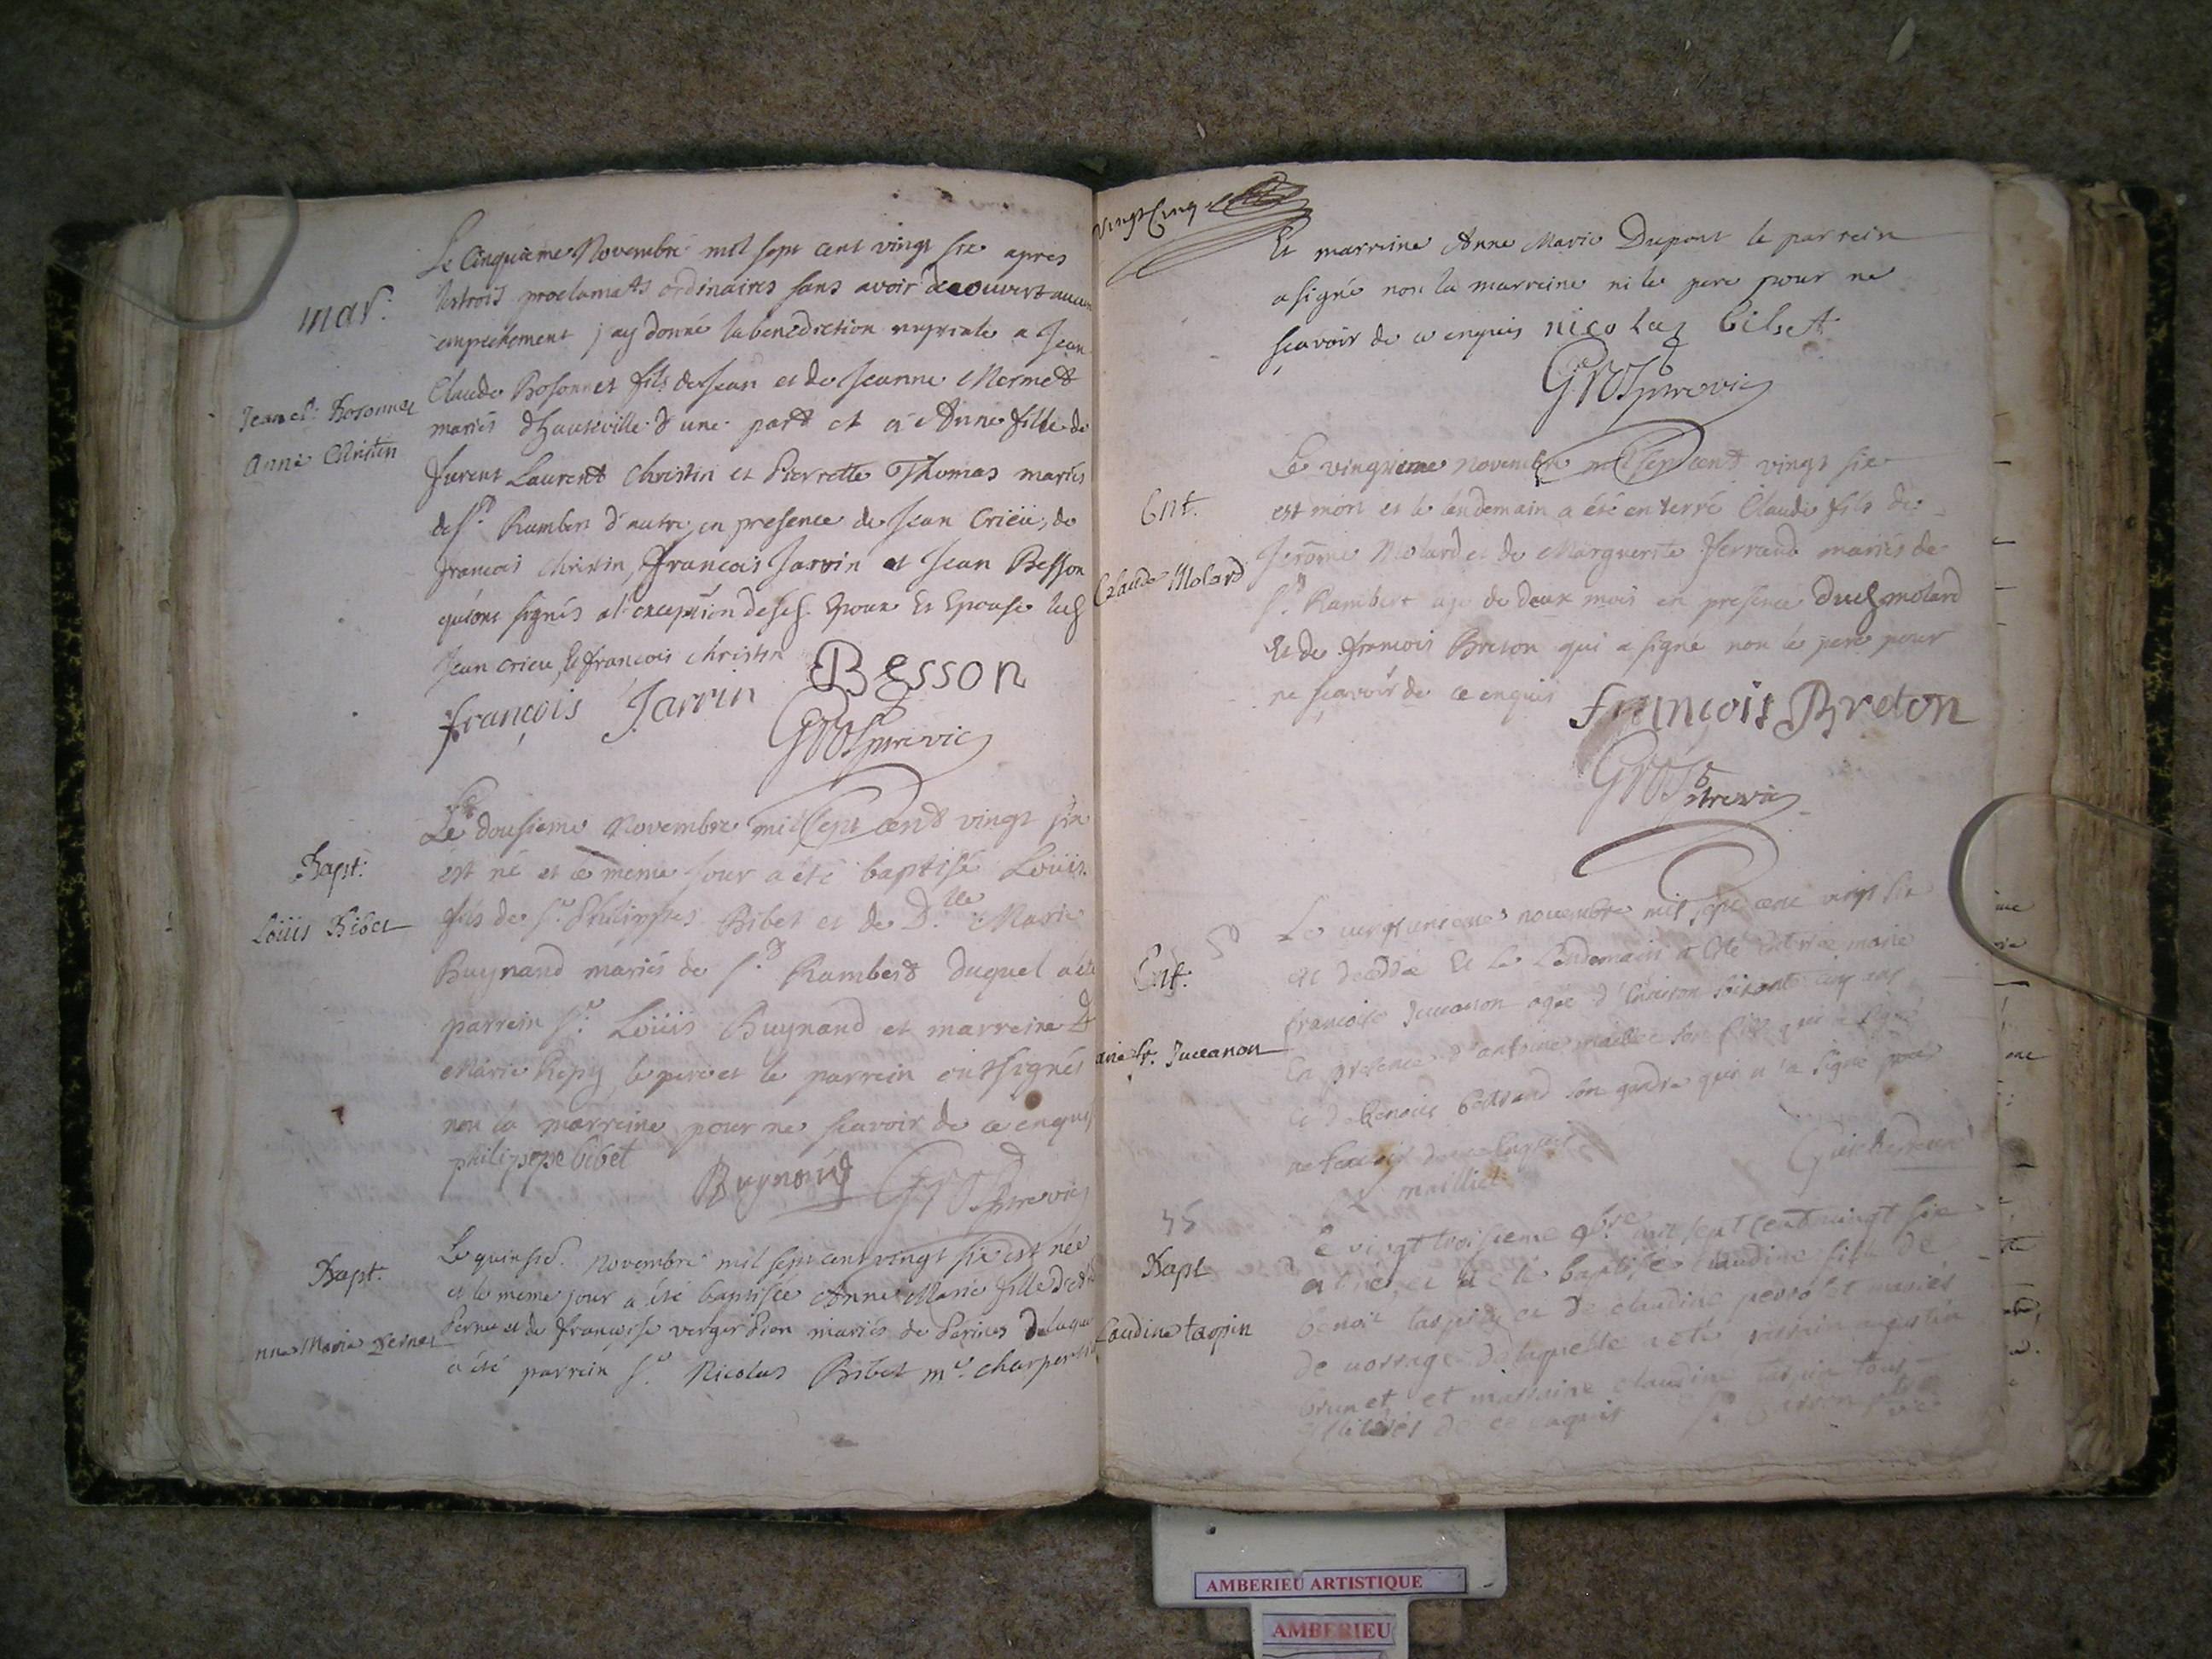 mar.
Jean cl. Bosonnet
Anne Christin
Le Cinquieme Novembre mil sept cent vingt six apres
les trois proclamats ordinaires sans avoir decouvert aucun
empechement j'ay donné la benediction nuptiale a Jean
Claude Bosonnet fils de Jean et de Jeanne Mermet
mariés d'hauteville d'une part et à Anne fille de
furent Laurent Christin et Pierrette Thomas mariés
de St. Rambert d'autre en presence de Jean Crieu, de
francois Christin, francois Jarrin et Jean Besson
qui ont signés a l'exception desd. Epoux et Epouse lesd.
Jean crieu, et françois christin Besson
françois Jarrin
Bapt.
Loüis Bibet
Le dousieme Novembre mil sept cent vingt six
est né et ce meme jour a été baptisé Loüis
fils de sr. Philippes Bibet et de Dlle. Marie
Buynand mariés de St. Rambert duquel a été
parrein sr. Loüis Buynand et marreine
Marie le pere et le parrein ont signés
non la marreine pour ne scavoir de ce enquis
philippe bibet Buynand
Bapt.
nne Marie Pernet
Le quinsie. Novembre mil sept cent vingt six est née
et le meme jour a été baptisée Anne Marie fille
Pernet et de francoise verger Dion mariés de
a été parrein sr. Nicolas Bibet me. charpentier
vingt Cinq
Et marreine Anne Marie Dupont le parrein
a signé non la marreine ni le pere pour ne
scavoir de ce enquis nicolas bibet
Ent.
Claude Molard
Le vingtieme novembre mil sept cent vingt six
est mort et le lendemain a été enterré Claude fils de
Jerôme Molard et de Marguerite ferrand mariés de
St. Rambert age de deux mois en presence dud. molard
Et de francois Breton qui a signé non le pere pour
ne scavoir de ce enquis françois Breton
Ent.
arie fr. Juccanon
Le vingt unieme novembre mil sept cent vingt six
est decedée Et Le Lendemain a Eté Enterrée marie
francoise Juccanon agée d'Environ soisante cinq ans
En presence d'antoine maillet son fils qui a signé
Et de benoit bertrand son gendre qui n'a signé pour
ne scavoir de ce Enquis
mailliet
45
Bapt
Laudine taopin
Le vingt troisieme 9bre mil sept cent vingt six
est née et a été baptisée claudine fille de
benoit et de claudine mariés
de laquelle a été parrain augustin
brunet et marraine claudine tous
illiterés de ce enquis
AMBERIEU ARTISTIQUE
AMBERIEU